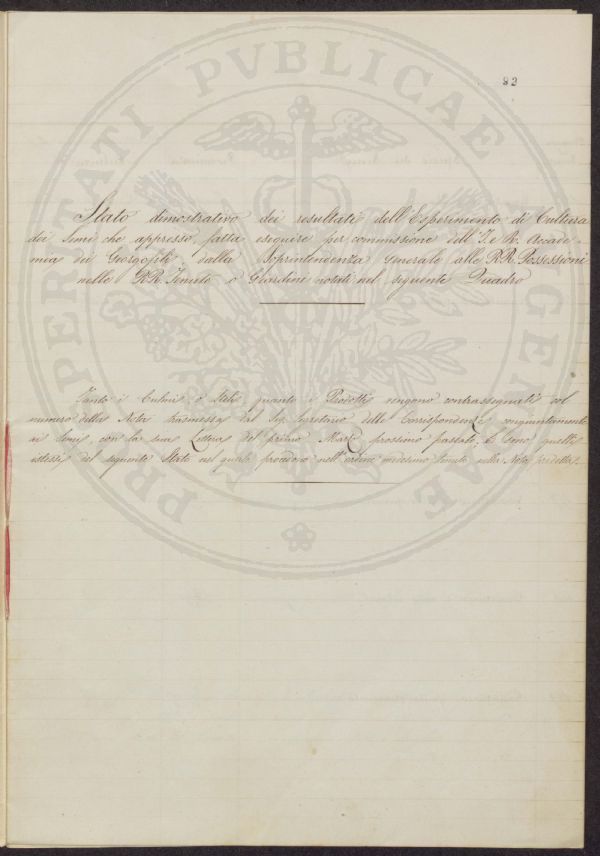 82
PROSPERITATI PVBLICAE AVGENDAE
Stato dimostrativo dei resultati dell'Esperimento di Cultura
dei Semi che appresso, fatta eseguire per commissione dell'I. e R. Accade-
mia dei Georgofili dalla Soprintendenza Generale alle RR. Possessioni
nelle RR. Tenute o Giardini notati nel seguente Quadro
Tanto i Culmi, o Steli, quanto i Prodotti vengono contrassegnati col
numero della Nota trasmessa dal Sig. Segretario delle Corrispondenze congiuntamente
ai Semi, con la sua Lettera del primo Marzo prossimo passato, e sono quelli
istessi del seguente Stato nel quale procedono nell'ordine medesimo tenuto nella Nota predetta.